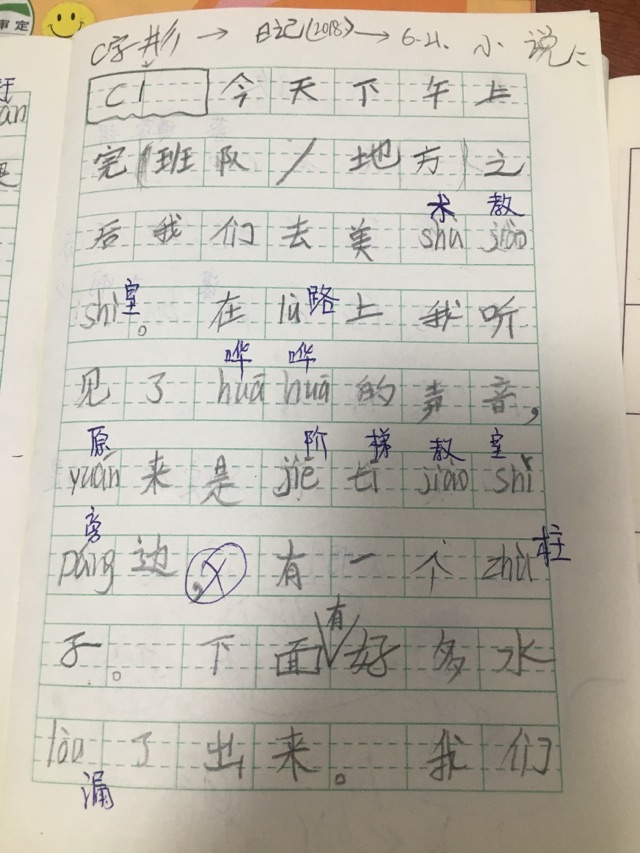 审定
C字形 → 日记(2018) → 6.21. 小说
C1 今天下午上
完(班队/地方)之
术 教
后我们去美 shu jiāo
shì 室。在 lù 路 上我听
哗 哗
见了 huā huā 的声音,
原 阶 梯 教 室
yuán 来是 jiē tī jiào shì
旁
páng 边, 有一个 zhù 柱
有
子。下面好多水
lòu 了出来。我们
漏